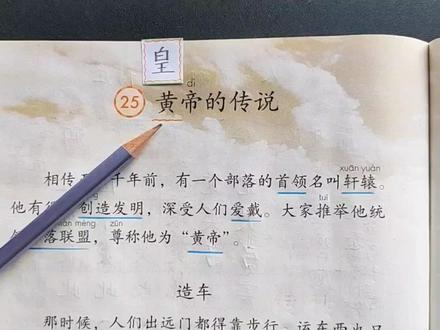 皇
dì
25 黄帝的传说
xuān yuán
相传 千年前，有一个部落的首领名叫轩辕。
tuī
他有 创造发明，深受人们爱戴。大家推举他统
méng zūn
落联盟，尊称他为“黄帝”。
造车
那时候，人们出远门都得靠步行，运东西也只